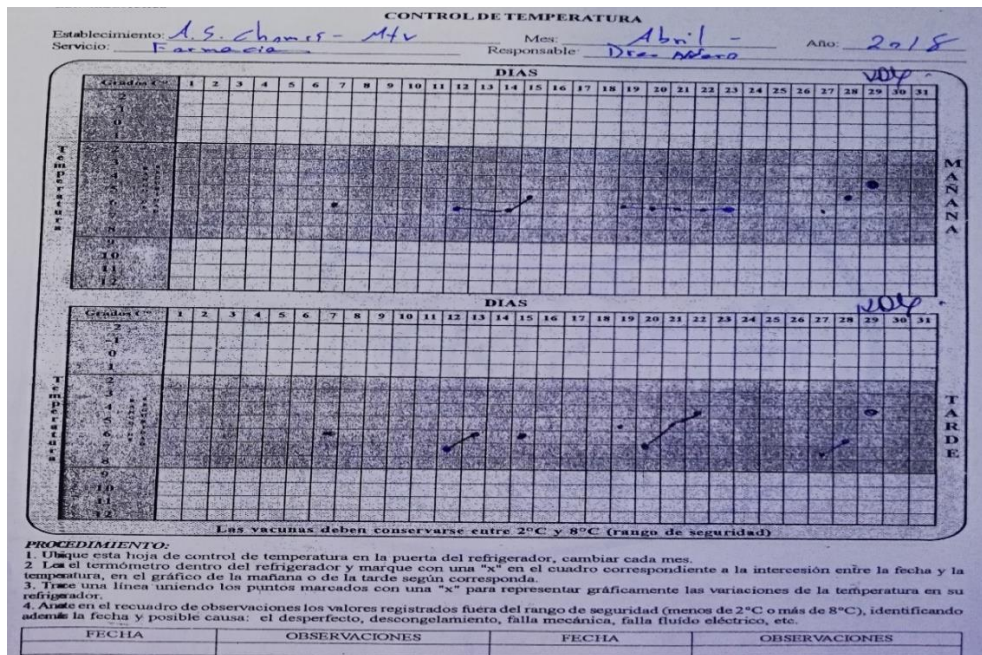 CONTROL DE TEMPERATURA
Establecimiento: A.S. Mes: Abril - Año: 2018
Servicio: Farmacia Responsable:
DIAS
Grados C° 1 2 3 4 5 6 7 8 9 10 11 12 13 14 15 16 17 18 19 20 21 22 23 24 25 26 27 28 29 30 31
2
1
0
1
2
3
4
5
6
7
8
9
10
11
12
Temperatura
MAÑANA
DIAS
Grados C° 1 2 3 4 5 6 7 8 9 10 11 12 13 14 15 16 17 18 19 20 21 22 23 24 25 26 27 28 29 30 31
2
1
0
1
2
3
4
5
6
7
8
9
10
11
12
Temperatura
TARDE
Las vacunas deben conservarse entre 2°C y 8°C (rango de seguridad)
PROCEDIMIENTO:
1. Ubique esta hoja de control de temperatura en la puerta del refrigerador, cambiar cada mes.
2 Lea el termómetro dentro del refrigerador y marque con una "x" en el cuadro correspondiente a la intercesión entre la fecha y la
temperatura, en el gráfico de la mañana o de la tarde según corresponda.
3. Trace una línea uniendo los puntos marcados con una "x" para representar gráficamente las variaciones de la temperatura en su
refrigerador.
4. Anote en el recuadro de observaciones los valores registrados fuera del rango de seguridad (menos de 2°C o más de 8°C), identificando
además la fecha y posible causa: el desperfecto, descongelamiento, falla mecánica, falla fluído eléctrico, etc.
FECHA OBSERVACIONES FECHA OBSERVACIONES